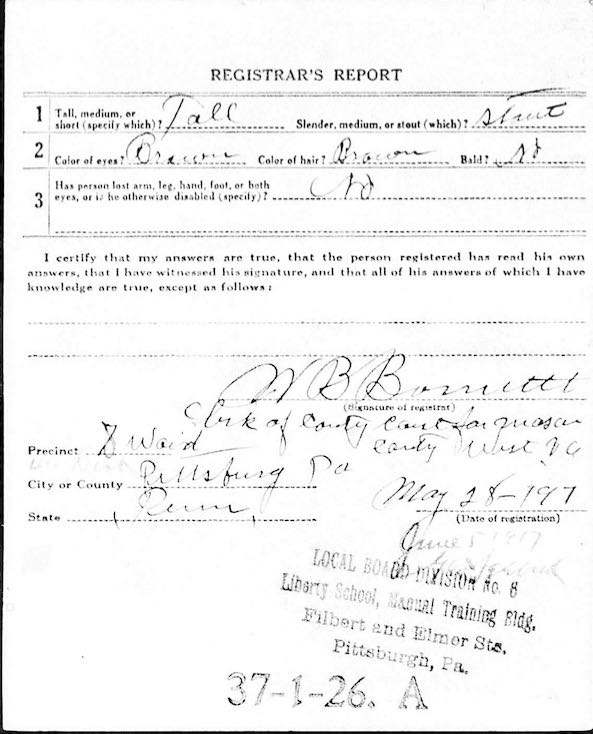 REGISTRAR'S REPORT
1 Tall, medium, or short (specify which)? Tall Slender, medium, or stout (which)? Stout
2 Color of eyes? Brown Color of hair? Brown Bald? No
3 Has person lost arm, leg, hand, foot, or both
eyes, or is he otherwise disabled (specify)? No
I certify that my answers are true, that the person registered has read his own
answers, that I have witnessed his signature, and that all of his answers of which I have
knowledge are true, except as follows:
W B
(Signature of registrar)
Clerk of County Court for Mason
County West Va
Precinct 7 Ward
City or County Pittsburg Pa
State Penn
May 28-1917
(Date of registration)
June 5 1917
LOCAL BOARD DIVISION No. 8
Liberty School, Manual Training Bldg.
Filbert and Elmer Sts.
Pittsburgh, Pa.
37-1-26. A